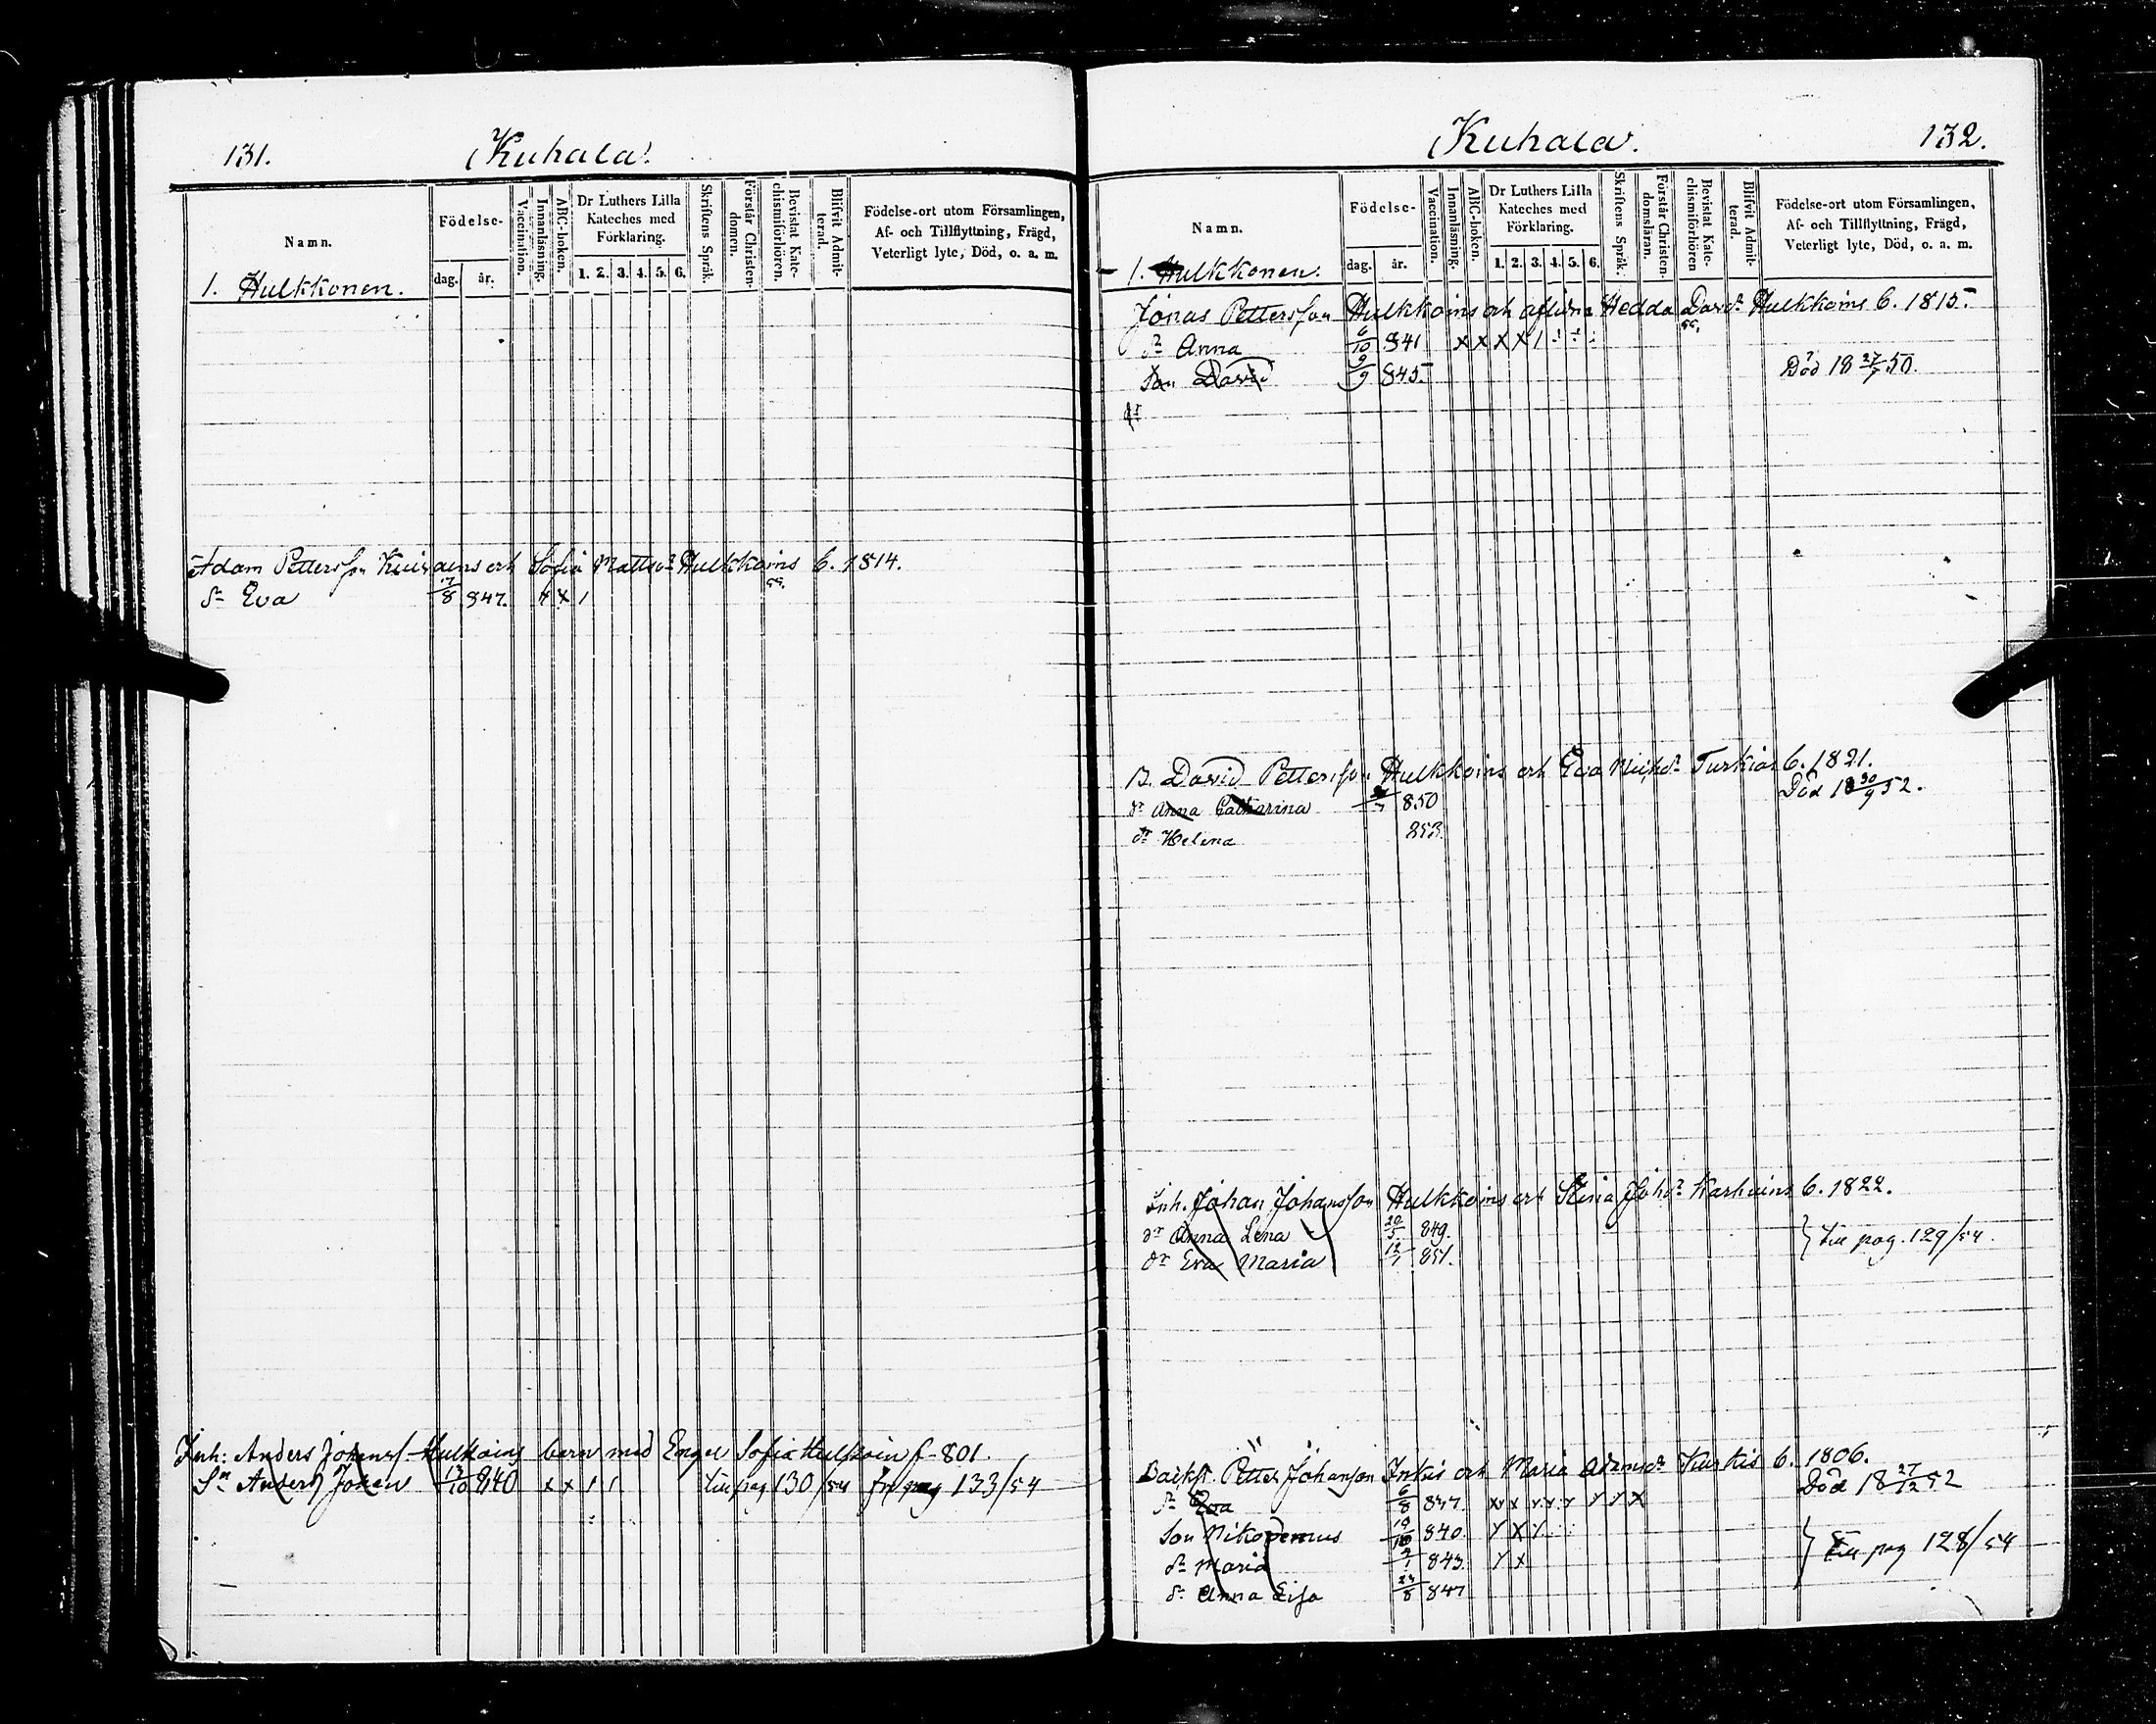 131.
Kuhala.
Namn.
Födelse-
dag.
år.
Vaccination.
Innanläsning.
ABC-boken.
Dr Luthers Lilla
Kateches med
Förklaring.
1. 2. 3. 4. 5. 6.
Skriftens Språk.
Förstår Christen-
domen.
Bevistat Kate-
chismiförhören.
Blifvit Admit-
terad.
Födelse-ort utom Församlingen,
Af- och Tillflyttning, Frägd,
Veterligt lyte, Död, o. a. m.
1. Hulkkonen.
Adam Pettersson och Sofia Mattsdr Hulkkoins b. 1814.
dr Eva 17/8 847. x x /
Inh: Anders Johans. Hulkoins barn med Engel Sofia Hulkoin f. 801.
Sn Anders Johan 12/10 840 x x / / till pag 130/54 fr pag 133/54
Kuhala.
132.
Namn.
Födelse-
dag.
år.
Vaccination.
Innanläsning.
ABC-boken.
Dr Luthers Lilla
Kateches med
Förklaring.
1. 2. 3. 4. 5. 6.
Skriftens Språk.
Förstår Christen-
domsläran.
Bevistat Kate-
chismiförhören
Blifvit Admit-
terad.
Födelse-ort utom Församlingen,
Af- och Tillflyttning, Frägd,
Veterligt lyte, Död, o. a. m.
1. Hulkkonen.
Jonas Pettersson Hulkkoins och aflidna Hedda Davdr Hulkkoins b. 1815.
dr Anna 6/10 841 x x x x /
Son David 9/9 845. Död 18 27/7 50.
dr
B. David Pettersson Hulkkoins och Eva Turkiar b. 1821.
dr Anna Catharina 850 Död 18 30/9 52.
dr Helena 853.
Inh. Johan Johansson Hulkkoins och Stina Johdr Karhuins b. 1822.
dr Anna Lena 20/5 849.
dr Eva Maria 12/7 851. } till pag. 129/54.
Petter Johanson Inkis och Maria Adamsdr Kurkis b. 1806.
dr Eva 6/8 837. Död 18 27/12 52
Son Nikodemus 19/10 840 x x x
dr Maria 2/1 843. x x } till pag 128/54
dr Anna Lisa 24/8 847